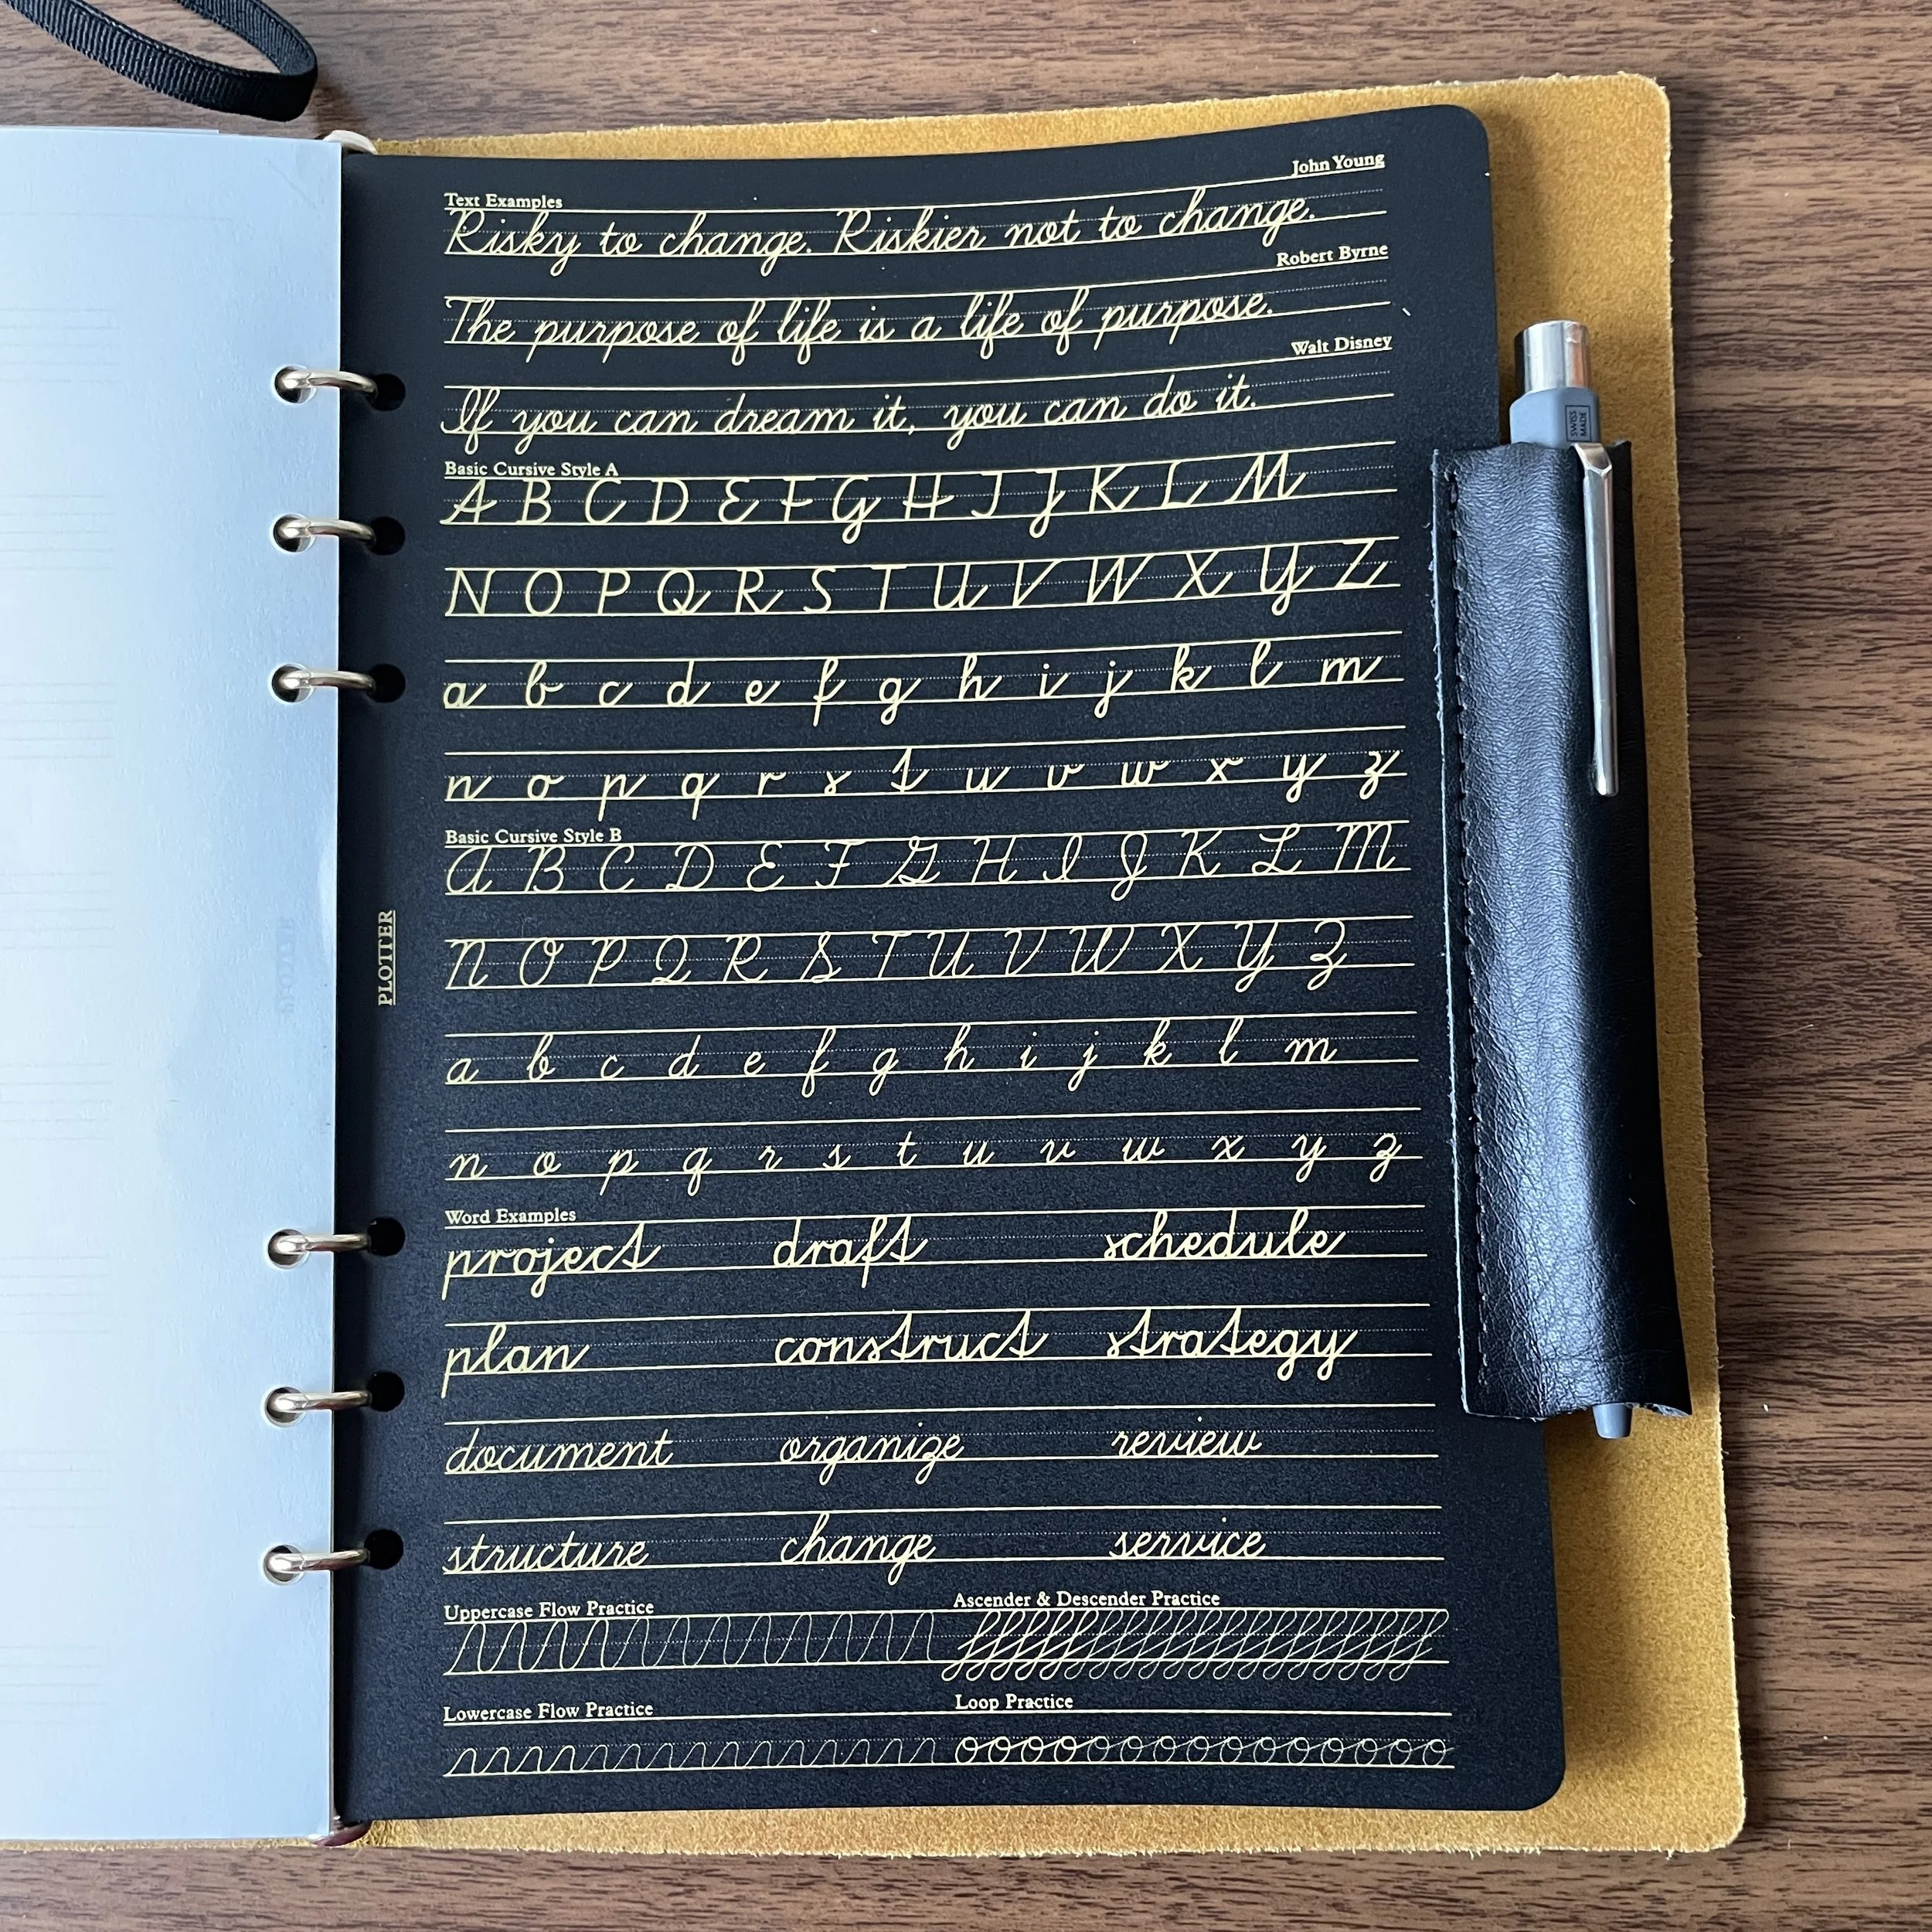 John Young
Text Examples
Risky to change. Riskier not to change.
Robert Byrne
The purpose of life is a life of purpose.
Walt Disney
If you can dream it, you can do it.
Basic Cursive Style A
A B C D E F G H I J K L M
N O P Q R S T U V W X Y Z
a b c d e f g h i j k l m
n o p q r s t u v w x y z
Basic Cursive Style B
A B C D E F G H I J K L M
N O P Q R S T U V W X Y Z
a b c d e f g h i j k l m
n o p q r s t u v w x y z
Word Examples
project draft schedule
plan construct strategy
document organize review
structure change service
Uppercase Flow Practice Ascender & Descender Practice
Lowercase Flow Practice Loop Practice
PLOTTER
SWISS
MADE